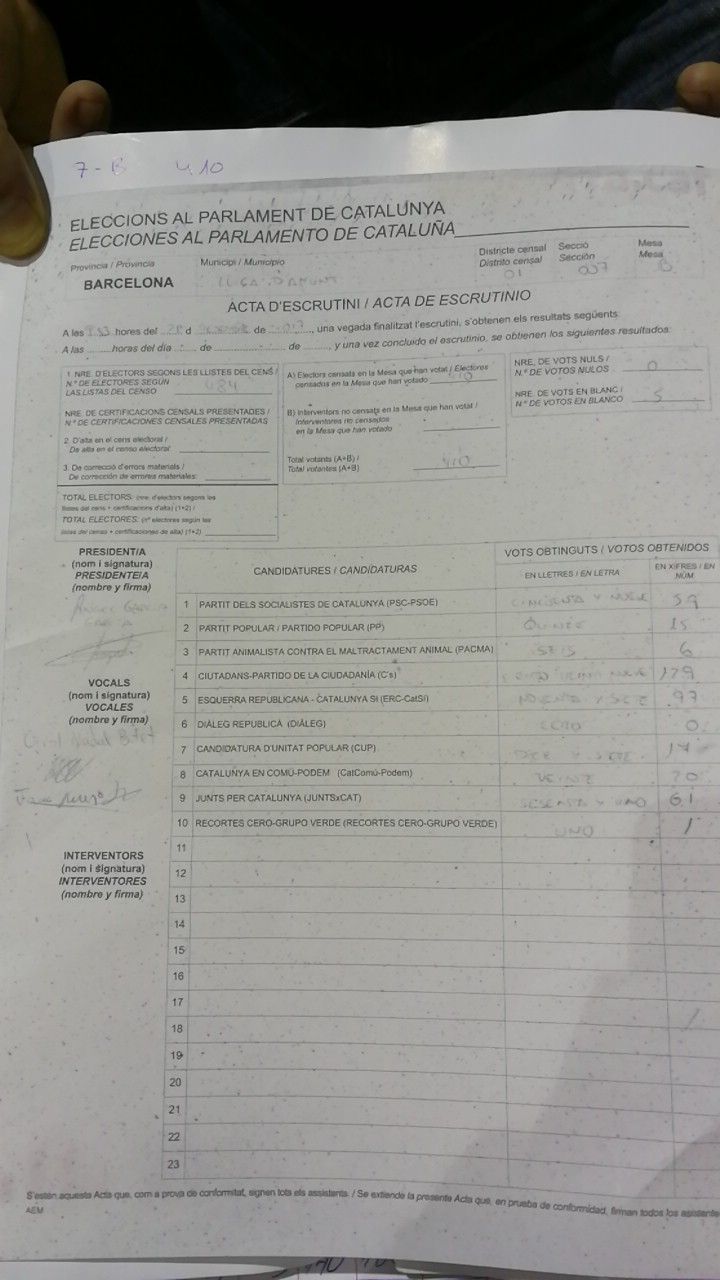 7-B 410
ELECCIONS AL PARLAMENT DE CATALUNYA
ELECCIONES AL PARLAMENTO DE CATALUÑA
Província / Provincia
Municipi / Municipio
Districte censal
Distrito censal
Secció
Sección
Mesa
Mesa
BARCELONA
01
007
B
ACTA D'ESCRUTINI / ACTA DE ESCRUTINIO
A les hores del d de , una vegada finalitzat l'escrutini, s'obtenen els resultats següents:
A las horas del día de de , y una vez concluido el escrutinio, se obtienen los siguientes resultados:
1. NRE. D'ELECTORS SEGONS LES LLISTES DEL CENS /
N.º DE ELECTORES SEGÚN
LAS LISTAS DEL CENSO 484
NRE. DE CERTIFICACIONS CENSALS PRESENTADES /
N.º DE CERTIFICACIONES CENSALES PRESENTADAS
2. D'alta en el cens electoral /
De alta en el censo electoral:
3. De correcció d'errors materials /
De corrección de errores materiales:
TOTAL ELECTORS: (nre. d'electors segons les
llistes del cens + certificacions d'alta) (1+2) /
TOTAL ELECTORES: (nº electores según las
listas del censo + certificaciones de alta) (1+2)
A) Electors censats en la Mesa que han votat / Electores
censados en la Mesa que han votado 410
B) Interventors no censats en la Mesa que han votat /
Interventores no censados
en la Mesa que han votado
Total votants (A+B) /
Total votantes (A+B) 410
NRE. DE VOTS NULS /
N.º DE VOTOS NULOS 0
NRE. DE VOTS EN BLANC /
N.º DE VOTOS EN BLANCO 5
PRESIDENT/A
(nom i signatura)
PRESIDENTE/A
(nombre y firma)
ÁNGEL GARCIA
GARCIA
VOCALS
(nom i signatura)
VOCALES
(nombre y firma)
INTERVENTORS
(nom i signatura)
INTERVENTORES
(nombre y firma)
CANDIDATURES / CANDIDATURAS
VOTS OBTINGUTS / VOTOS OBTENIDOS
EN LLETRES / EN LETRA
EN XIFRES / EN NÚM.
1 PARTIT DELS SOCIALISTES DE CATALUNYA (PSC-PSOE) CINCUENTA Y NUEVE 59
2 PARTIT POPULAR / PARTIDO POPULAR (PP) QUINCE 15
3 PARTIT ANIMALISTA CONTRA EL MALTRACTAMENT ANIMAL (PACMA) SEIS 6
4 CIUTADANS-PARTIDO DE LA CIUDADANÍA (C's) 129
5 ESQUERRA REPUBLICANA - CATALUNYA SÍ (ERC-CatSí) NOVENTA Y SIETE 97
6 DIÀLEG REPUBLICÀ (DIÀLEG) CERO 0
7 CANDIDATURA D'UNITAT POPULAR (CUP) 17
8 CATALUNYA EN COMÚ-PODEM (CatComú-Podem) VEINTE 20
9 JUNTS PER CATALUNYA (JUNTSxCAT) SESENTA Y UNO 61
10 RECORTES CERO-GRUPO VERDE (RECORTES CERO-GRUPO VERDE) UNO 1
11
12
13
14
15
16
17
18
19
20
21
22
23
S'estén aquesta Acta que, com a prova de conformitat, signen tots els assistents. / Se extiende la presente Acta que, en prueba de conformidad, firman todos los asistente
AEM